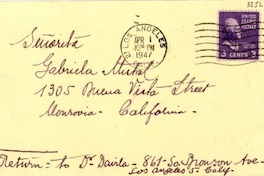 325
LOS ANGELES
APR 1
PM
1947
UNITED STATES
POSTAGE
3 CENTS 3
Señorita
Gabriela Mistral
1305 Buena Vista Street
Monrovia - California.
Return = to Dr Davila - 861 - So. Bronson Ave -
Los Angeles 5 - Caly.